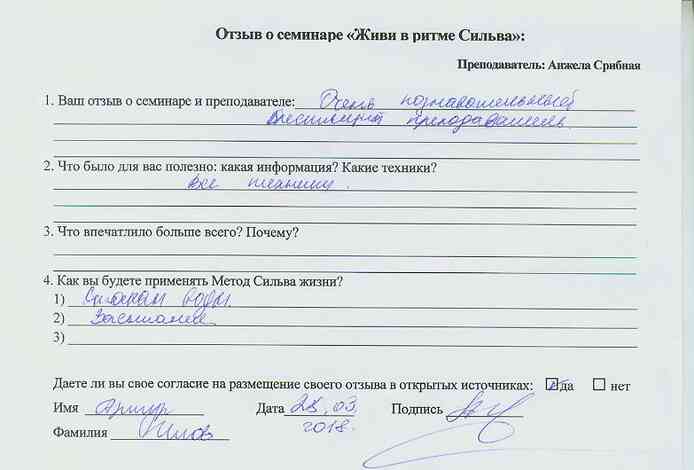 Отзыв о семинаре «Живи в ритме Сильва»:
Преподаватель: Анжела Срибная
1. Ваш отзыв о семинаре и преподавателе: Очень познавательный
преподаватель.
2. Что было для вас полезно: какая информация? Какие техники?
Все техники.
3. Что впечатлило больше всего? Почему?
4. Как вы будете применять Метод Сильва жизни?
1) Стакан воды.
2) Засыпание.
3)
Даете ли вы свое согласие на размещение своего отзыва в открытых источниках: да нет
Имя Артур Дата 25.03. Подпись
2018.
Фамилия